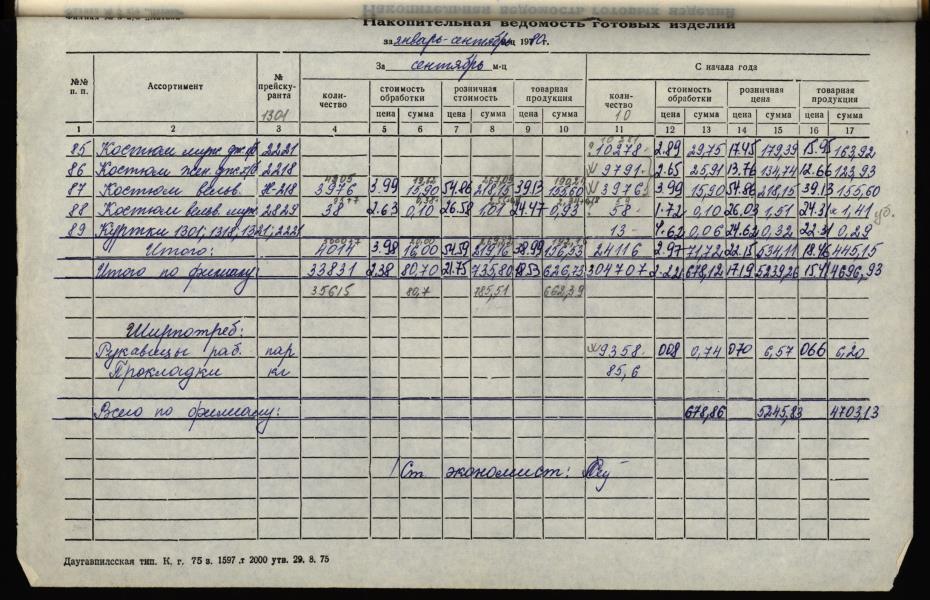 Накопительная ведомость готовых изделий
за январь-сентябрь м-ц 1980г.
За сентябрь м-ц
С начала года
№№ п. п. Ассортимент № прейску-ранта количество стоимость обработки розничная стоимость товарная продукция количество стоимость обработки розничная цена товарная продукция
1301 10
цена сумма цена сумма цена сумма цена сумма цена сумма цена сумма
1 2 3 4 5 6 7 8 9 10 11 12 13 14 15 16 17
85 Костюм муж 2221 10278 2.89 29,75 17.45 179,39 15.95 163,92
86 Костюм жен 2218 9791 2.65 25,91 13.76 134,74 12.66 123,93
87 Костюм вельв. Н-218 3976 3.99 15,90 54.86 218,15 39.13 155,60 3976 3.99 15,90 54.86 218,15 39.13 155,60
88 Костюм вельв. муж. 2829 38 2.63 0,10 26.58 1,01 24.47 0,93 58 1.72 0,10 26.03 1,51 24.31 1,41
89 Куртки 1301; 1318; 1321; 2221 13 4.62 0,06 24.62 0,32 22.31 0,29
Итого: 4014 3.98 16,00 54.59 219,16 38.99 156,53 24116 2.97 71,72 22.15 534,11 18.46 445,15
Итого по филиалу: 33831 2.38 80,70 21.75 735,80 18.53 626,73 304707 2.22 678,12 17.19 5239,26 15.41 4696,93
35615 80,7 785,51 662,39
Ширпотреб:
Рукавицы раб. пар 9358 0.08 0,74 0.70 6,57 0.66 6,20
Прокладки кг 85,6
Всего по филиалу: 678,86 5245,83 4703,13
Ст. экономист:
Даугавпилсская тип. К. г. 75 з. 1597 .т 2000 утв. 29. 8. 75